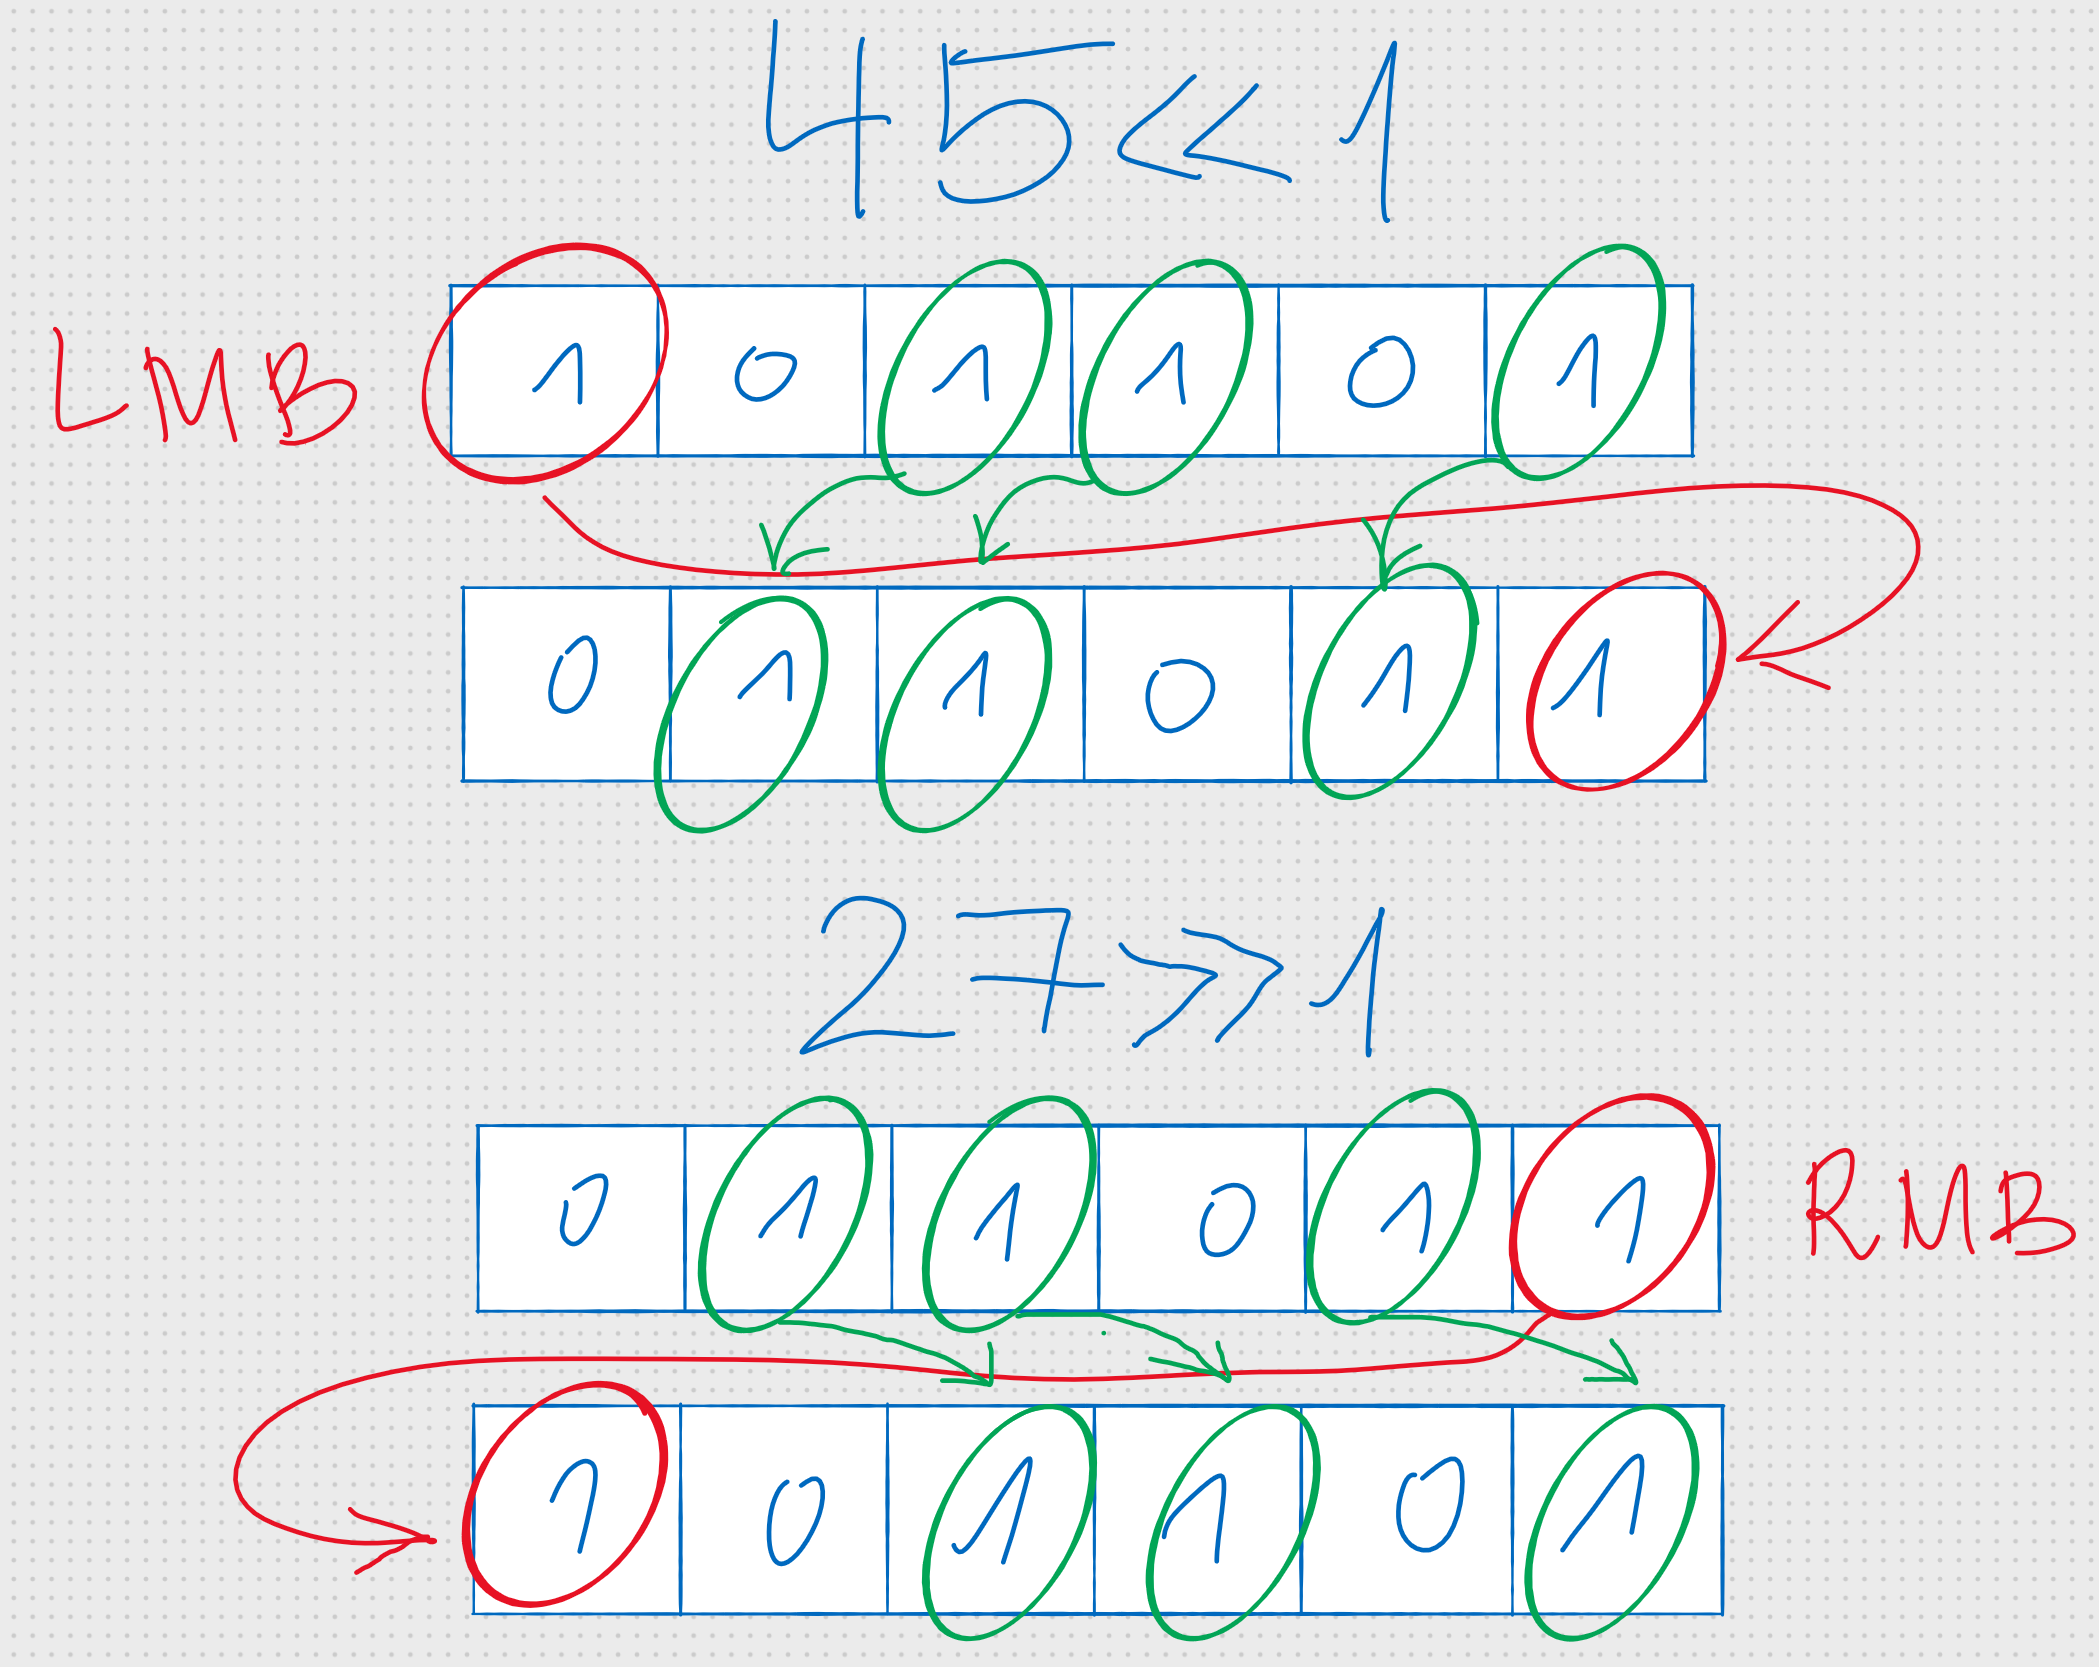 45<<1
LMB 1 0 1 1 0 1
0 1 1 0 1 1
27>>1
0 1 1 0 1 1 RMB
1 0 1 1 0 1